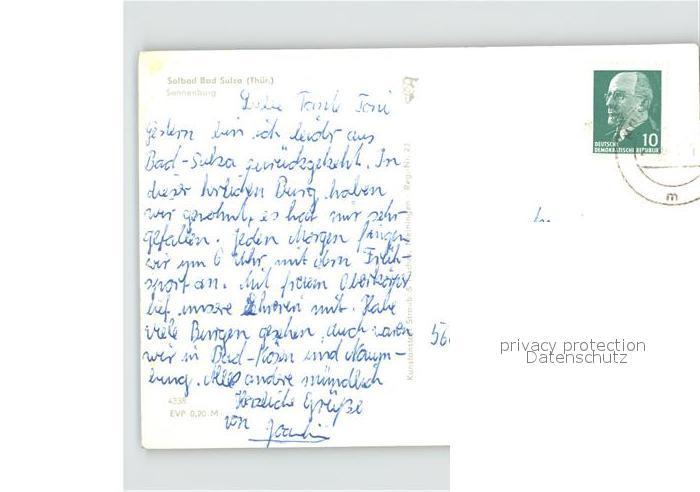 Solbad Bad Sulza (Thür.)
Sonnenburg
Liebe Tante Toni
Gestern bin ich leider aus
Bad-Sulza zurückgekehrt. In
dieser herlichen Burg haben
wir gewohnt, es hat mir sehr
gefallen. Jeden Morgen fingen
wir um 6 Uhr mit dem Früh-
sport an. Mit freiem Oberkörper
lief unsere Lehrerin mit. Habe
viele Burgen gesehen, auch waren
wir in Bad-Kösen und Naum-
burg. Alles andere mündlich
Herzliche Grüße
von Joachim
4338
EVP 0,20 M
Reg.-Nr. 23
DEUTSCHE
DEMOKRATISCHE REPUBLIK
10
m
56
privacy protection
Datenschutz